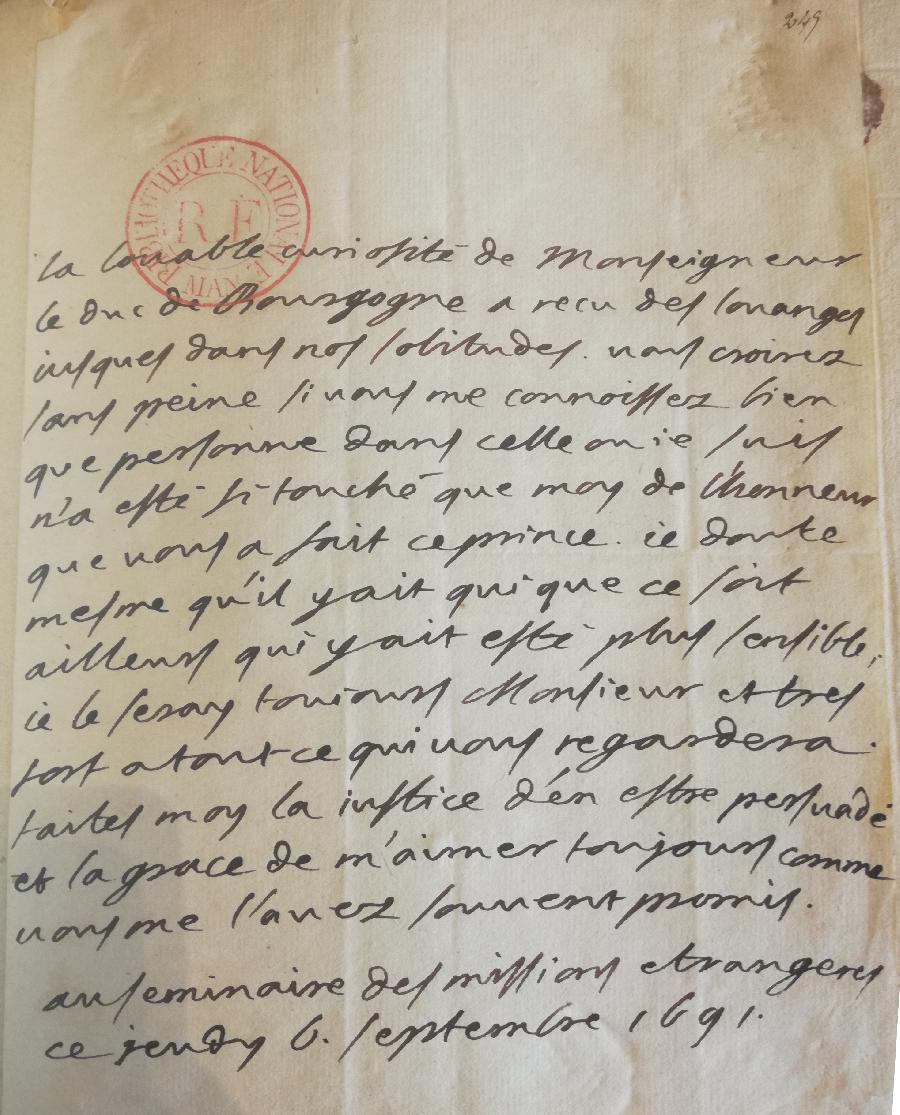 249
BIBLIOTHEQUE NATIONALE MAN
R F
la louable curiosité de Monseigneur
le duc de Bourgogne a recu des louanges
iusques dans nos solitudes. uous croirez
sans peine si uous me connoissez bien
que personne dans celle ou ie suis
n'a esté si touché que moy de l'honneur
que uous a fait ce prince. ie doute
mesme qu'il y ait qui que ce soit
ailleurs qui y ait esté plus sensible,
ie le seray touiours Monsieur et tres
fort a tout ce qui uous regardera.
faites moy la iustice d'én estre persuadé
et la grace de m'aimer toujours comme
uous me l'auez souuent promis.
au seminaire des missions etrangeres
ce jeudy 6. septembre 1691.